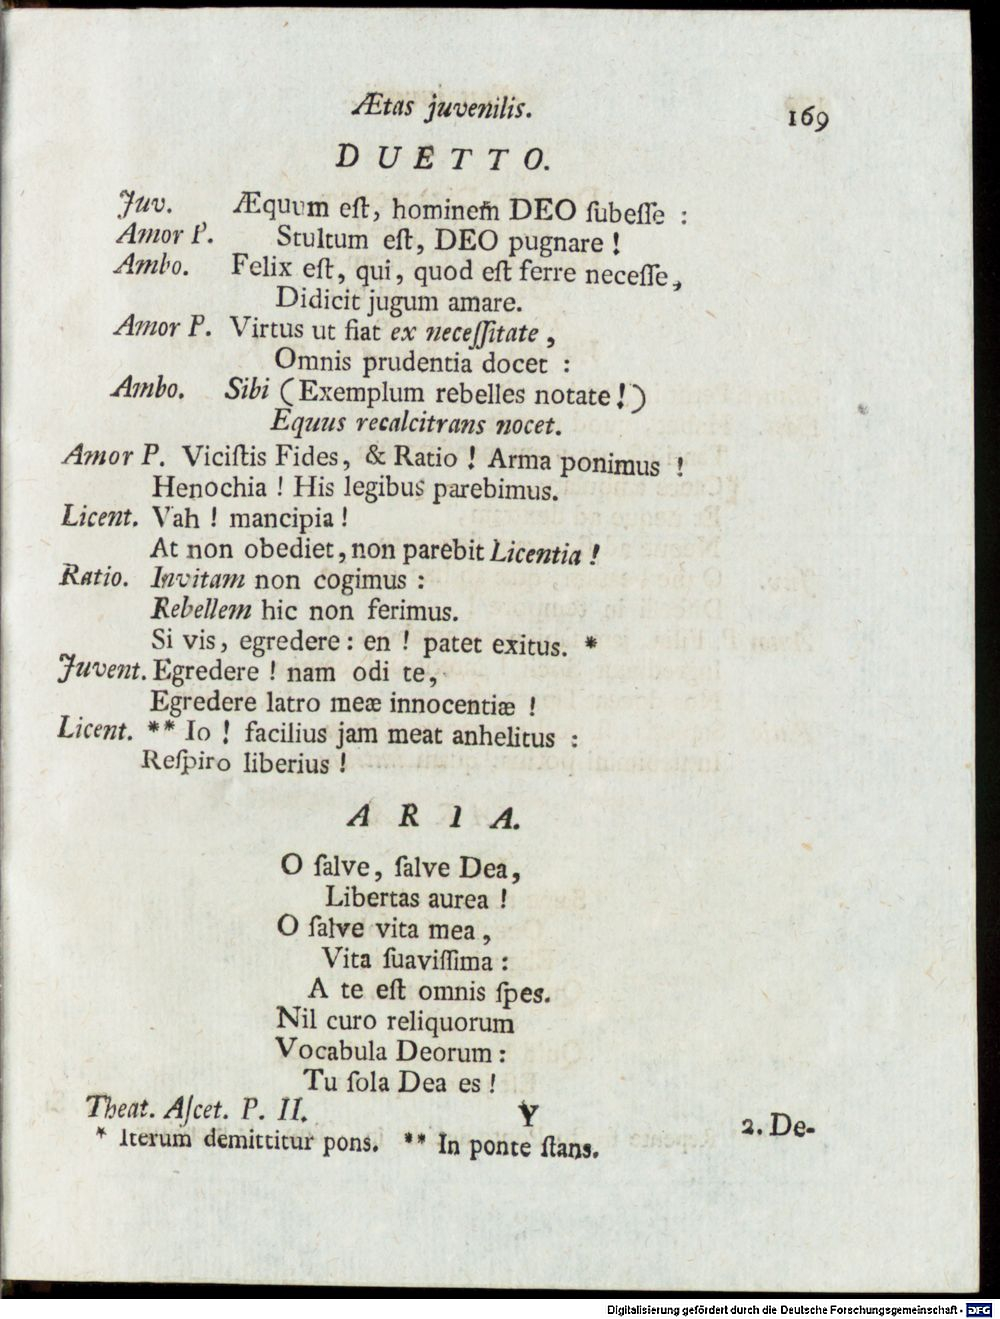 Ætas juvenilis.
169
DUETTO.
Juv. Æquum eſt, hominem̃ DEO ſubeſſe :
Amor P. Stultum eſt, DEO pugnare !
Ambo. Felix eſt, qui, quod eſt ferre neceſſe,
Didicit jugum amare.
Amor P. Virtus ut fiat ex neceſſitate ,
Omnis prudentia docet :
Ambo. Sibi (Exemplum rebelles notate!)
Equus recalcitrans nocet.
Amor P. Viciſtis Fides, & Ratio ! Arma ponimus !
Henochia ! His legibus parebimus.
Licent. Vah ! mancipia !
At non obediet, non parebit Licentia !
Ratio. Invitam non cogimus :
Rebellem hic non ferimus.
Si vis, egredere : en ! patet exitus. *
Juvent. Egredere ! nam odi te,
Egredere latro meæ innocentiæ !
Licent. ** Io ! facilius jam meat anhelitus :
Reſpiro liberius !
ARIA.
O ſalve, ſalve Dea,
Libertas aurea !
O ſalve vita mea,
Vita ſuaviſſima :
A te eſt omnis ſpes.
Nil curo reliquorum
Vocabula Deorum :
Tu ſola Dea es !
Theat. Aſcet. P. II. Y 2. De-
* Iterum demittitur pons. ** In ponte ſtans.
Digitalisierung gefördert durch die Deutsche Forschungsgemeinschaft - DFG